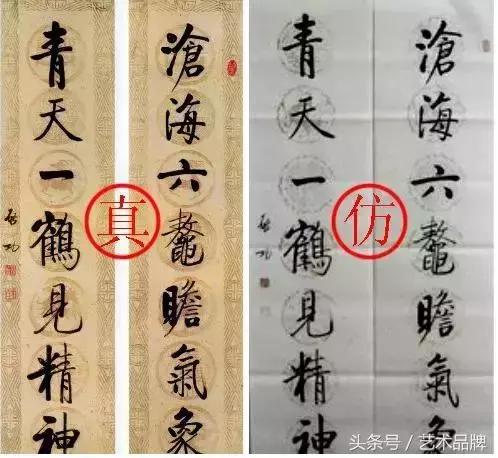 滄海六鼇瞻氣象
青天一鶴見精神
啟功
真
滄海六鼇瞻氣象
青天一鶴見精神
啟功
仿
头条号／艺术品牌